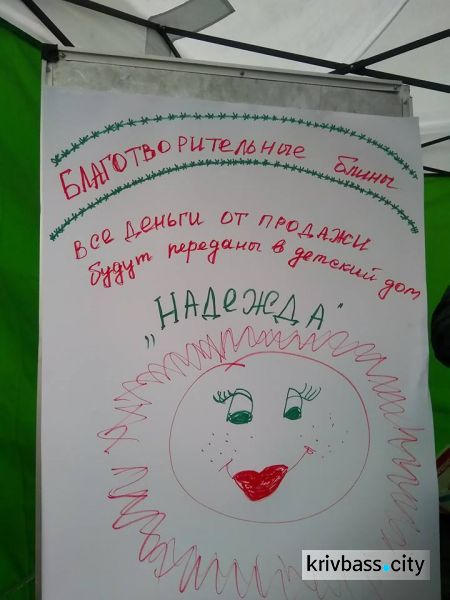 БЛАГОТВОРИТЕЛЬНЫЕ блины
ВСЕ ДЕНЬГИ ОТ ПРОДАЖИ
будут переданы в детский дом
„НАДЕЖДА"
krivbass.city